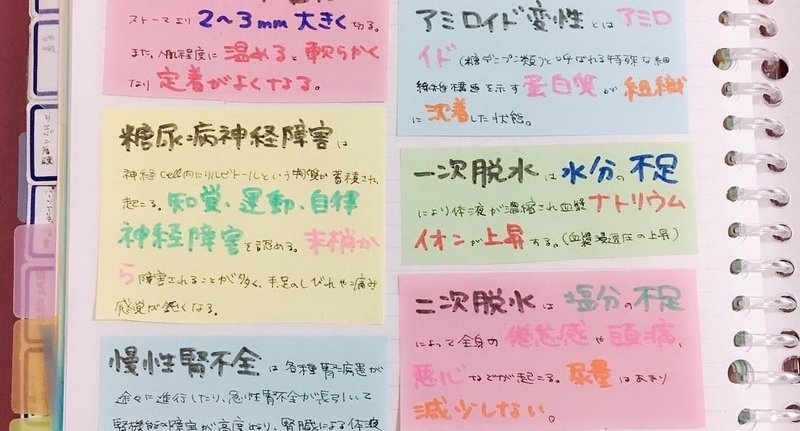 ストーマより2〜3mm大きく切る。
また、人肌程度に温めると軟らかく
なり定着がよくなる。
糖尿病神経障害は
神経cell内にソルビトールという物質が蓄積され
起こる。知覚、運動、自律
神経障害を認める。末梢か
ら障害されることが多く、手足のしびれや痛み
感覚が鈍くなる。
慢性腎不全は各種腎病変が
徐々に進行したり、急性腎不全が長引いて
腎機能の障害が高度なり、腎臓による体液
アミロイド変性とはアミロ
イド(糖デンプン類)と呼ばれる特殊な細
線維構造を示す蛋白質が組織
に沈着した状態。
一次脱水は水分の不足
により体液が濃縮され血漿ナトリウム
イオンが上昇する。(血漿浸透圧の上昇)
二次脱水は塩分の不足
によって全身の倦怠感や頭痛、
悪心などが起こる。尿量はあまり
減少しない。